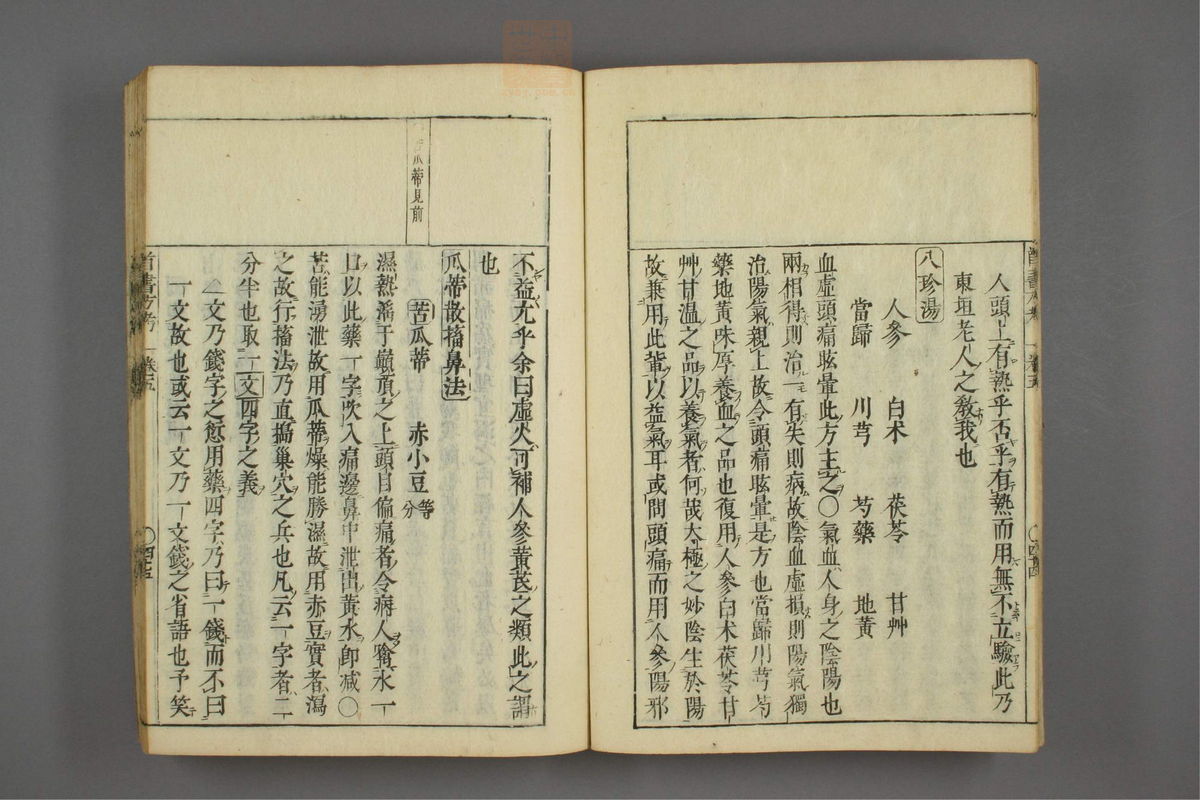 人頭上有熱乎否乎有熱而用無不立驗此乃
東垣老人之教我也
八珍湯
人參 白术 茯苓 甘艸
當歸 川芎 芍藥 地黃
血虛頭痛眩暈此方主之○氣血人身之陰陽也
兩相得則治一有失則病故陰血虛損則陽氣獨
治陽氣親上故令頭痛眩暈是方也當歸川芎芍
藥地黃味厚養血之品也復用人參白术茯苓甘
艸甘溫之品以養氣者何哉太極之妙陰生於陽
故兼用此輩以益氣耳或問頭痛而用人參陽邪
不益亢乎余曰虛火可補人參黃芪之類此之謂
也
苦瓜蒂見前
瓜蒂散搐鼻法
苦瓜蒂 赤小豆等分
濕熱滀于巔頂之上頭目偏痛者令病人噙水一
口以此藥一字吹入痛邊鼻中泄出黃水即减○
苦能湧泄故用瓜蒂燥能勝濕故用赤豆實者瀉
之故行搐法乃直搗巢穴之兵也凡云一字者二
分半也取一文四字之義
一文乃錢字之愆用藥四字乃曰一錢而不曰
一文故也或云一文乃一文錢之省語也予笑
醫書方考 卷五